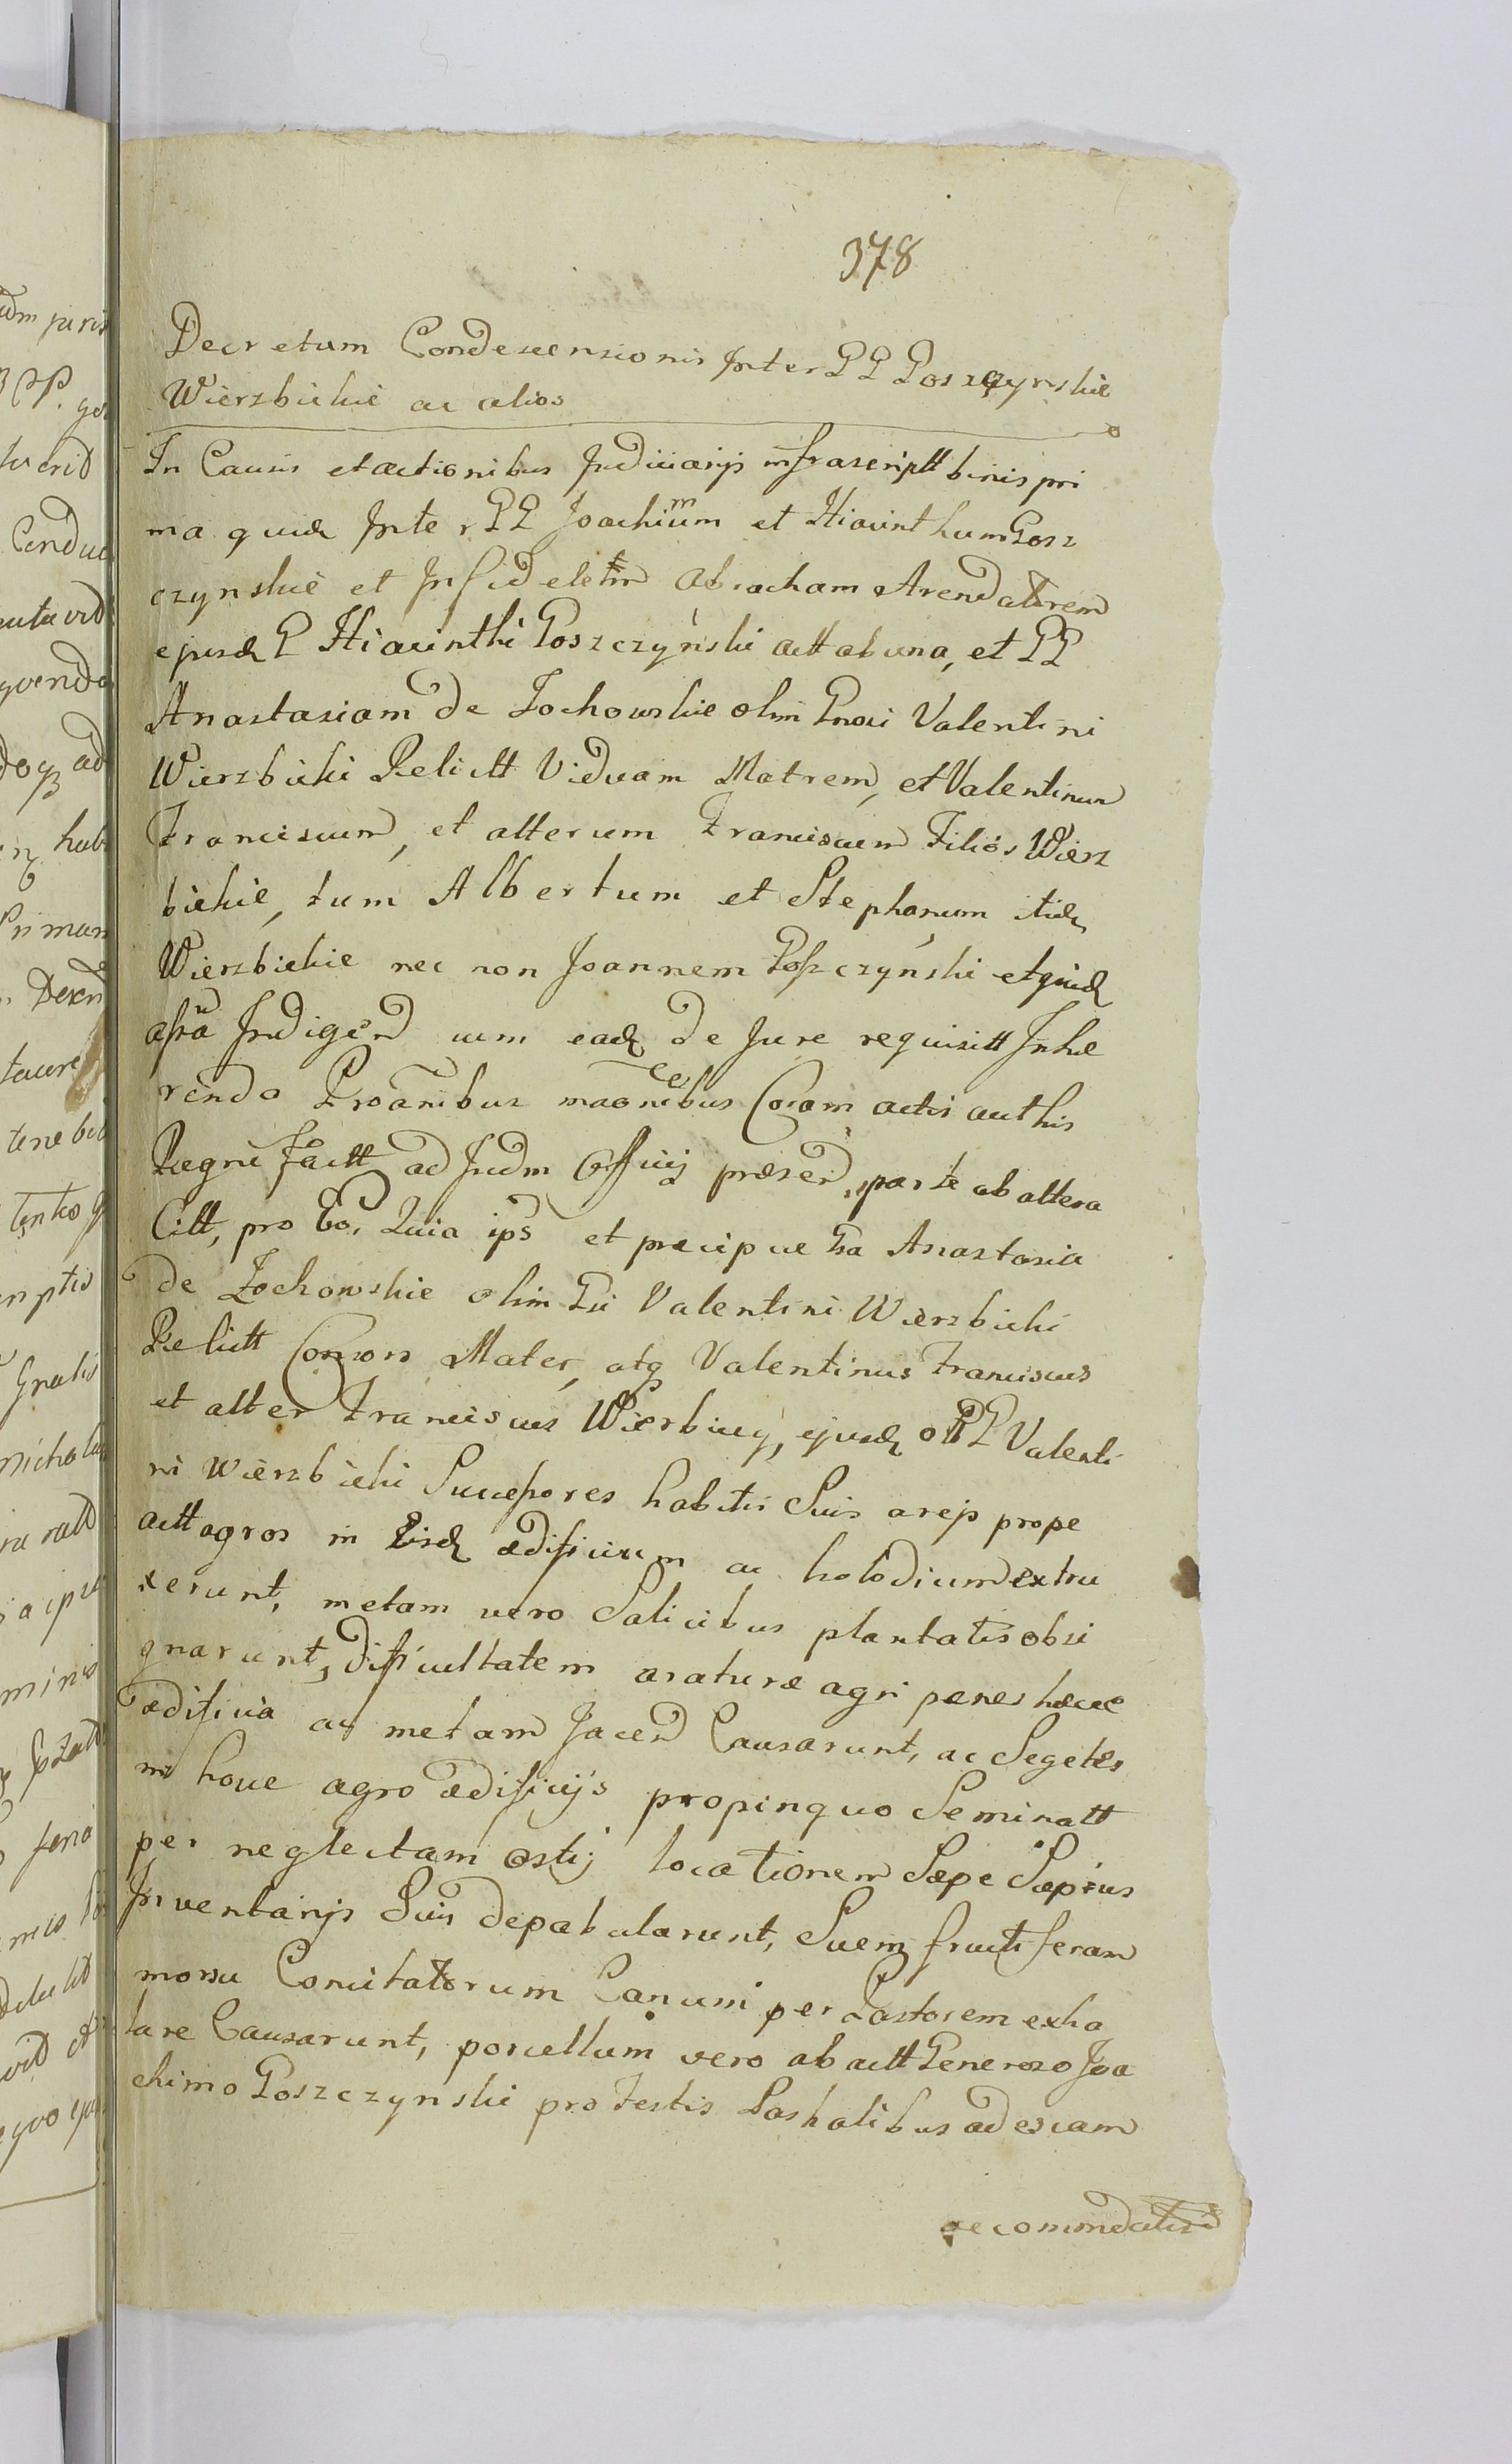 378
Decretum Condescensionis Inter GG Goszczynskie
Wierzbickie ac alios
In Causis et actionibus Judiciarijs infrascriptt binis pri
ma quidz Inter GG Joachimum et Hiacinthum Gosz
czynskie et Infidelem Abracham Arendatorem
ejusdz G Hiacinthi Goszczyński actt ab una, et GG
Anastasiam de Żochowskie olim Gnosi Valentini
Wierzbicki Relictt Viduam Matrem, et Valentinum
Franciscum, et alterum Franciscum Filios Wierz
bickie, tum Albertum et Stephanum itidz
Wierzbickie nec non Joannem Goszczyński etquidz
asstã Indigend cum eadz de Jure requisitt Inhe
rendo Proãnibus maõnibus Coram actis authis
Regni factt ad Judm Officij præsend, parte ab altera
Citt, pro Eo, Quia ips et præcipue Ga Anastasia
de Żochowskie olim Gsi Valentini Wierzbicki
Relictt Consors Mater, atq Valentinus Franciscus
et alter Franciscus Wierbiccy, ejusdz G Valenti
ni Wierzbicki Successores habitis Suis areis prope
actt agros in Eisdz ædificium ac holodium extru
xerunt, metam vero Salicibus plantatis obsi
gnarunt, difficultatem araturæ agri penes hæcce
ædificia ac metam Jacend Causarunt, ac Segetes
in hocce agro ædificijs propinquo Seminatt
per neglectam ostij locationem Sæpe Sæpius
Inventarijs Suis depabularunt, Suem fructiferam
morsu Concitatorum Canum per Pastorem exha
lare Causarunt, porcellum vero ab actt Generoso Joa
chimo Goszczynski pro Festis Pashalibus ad escam